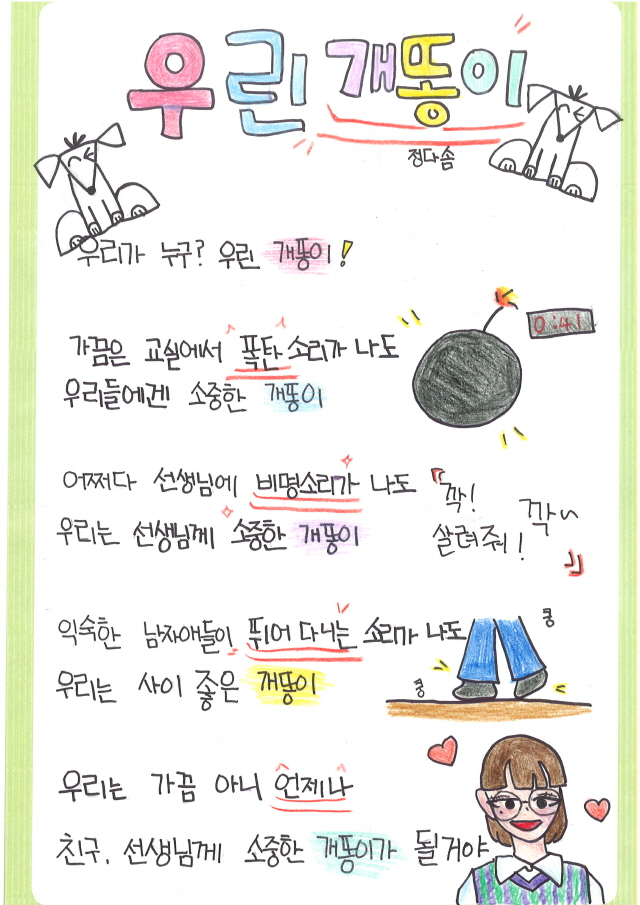 우린 개똥이
정다솜
우리가 누구? 우린 개똥이!
0:41
가끔은 교실에서 폭탄 소리가 나도
우리들에겐 소중한 개똥이
어쩌다 선생님에 비명소리가 나도
우리는 선생님께 소중한 개똥이
『깍!
깍~
살려줘! 』
익숙한 남자애들이 뛰어 다니는 소리가 나도
쿵
우리는 사이 좋은 개똥이
쿵
우리는 가끔 아니 언제나
친구, 선생님께 소중한 개똥이가 될거야